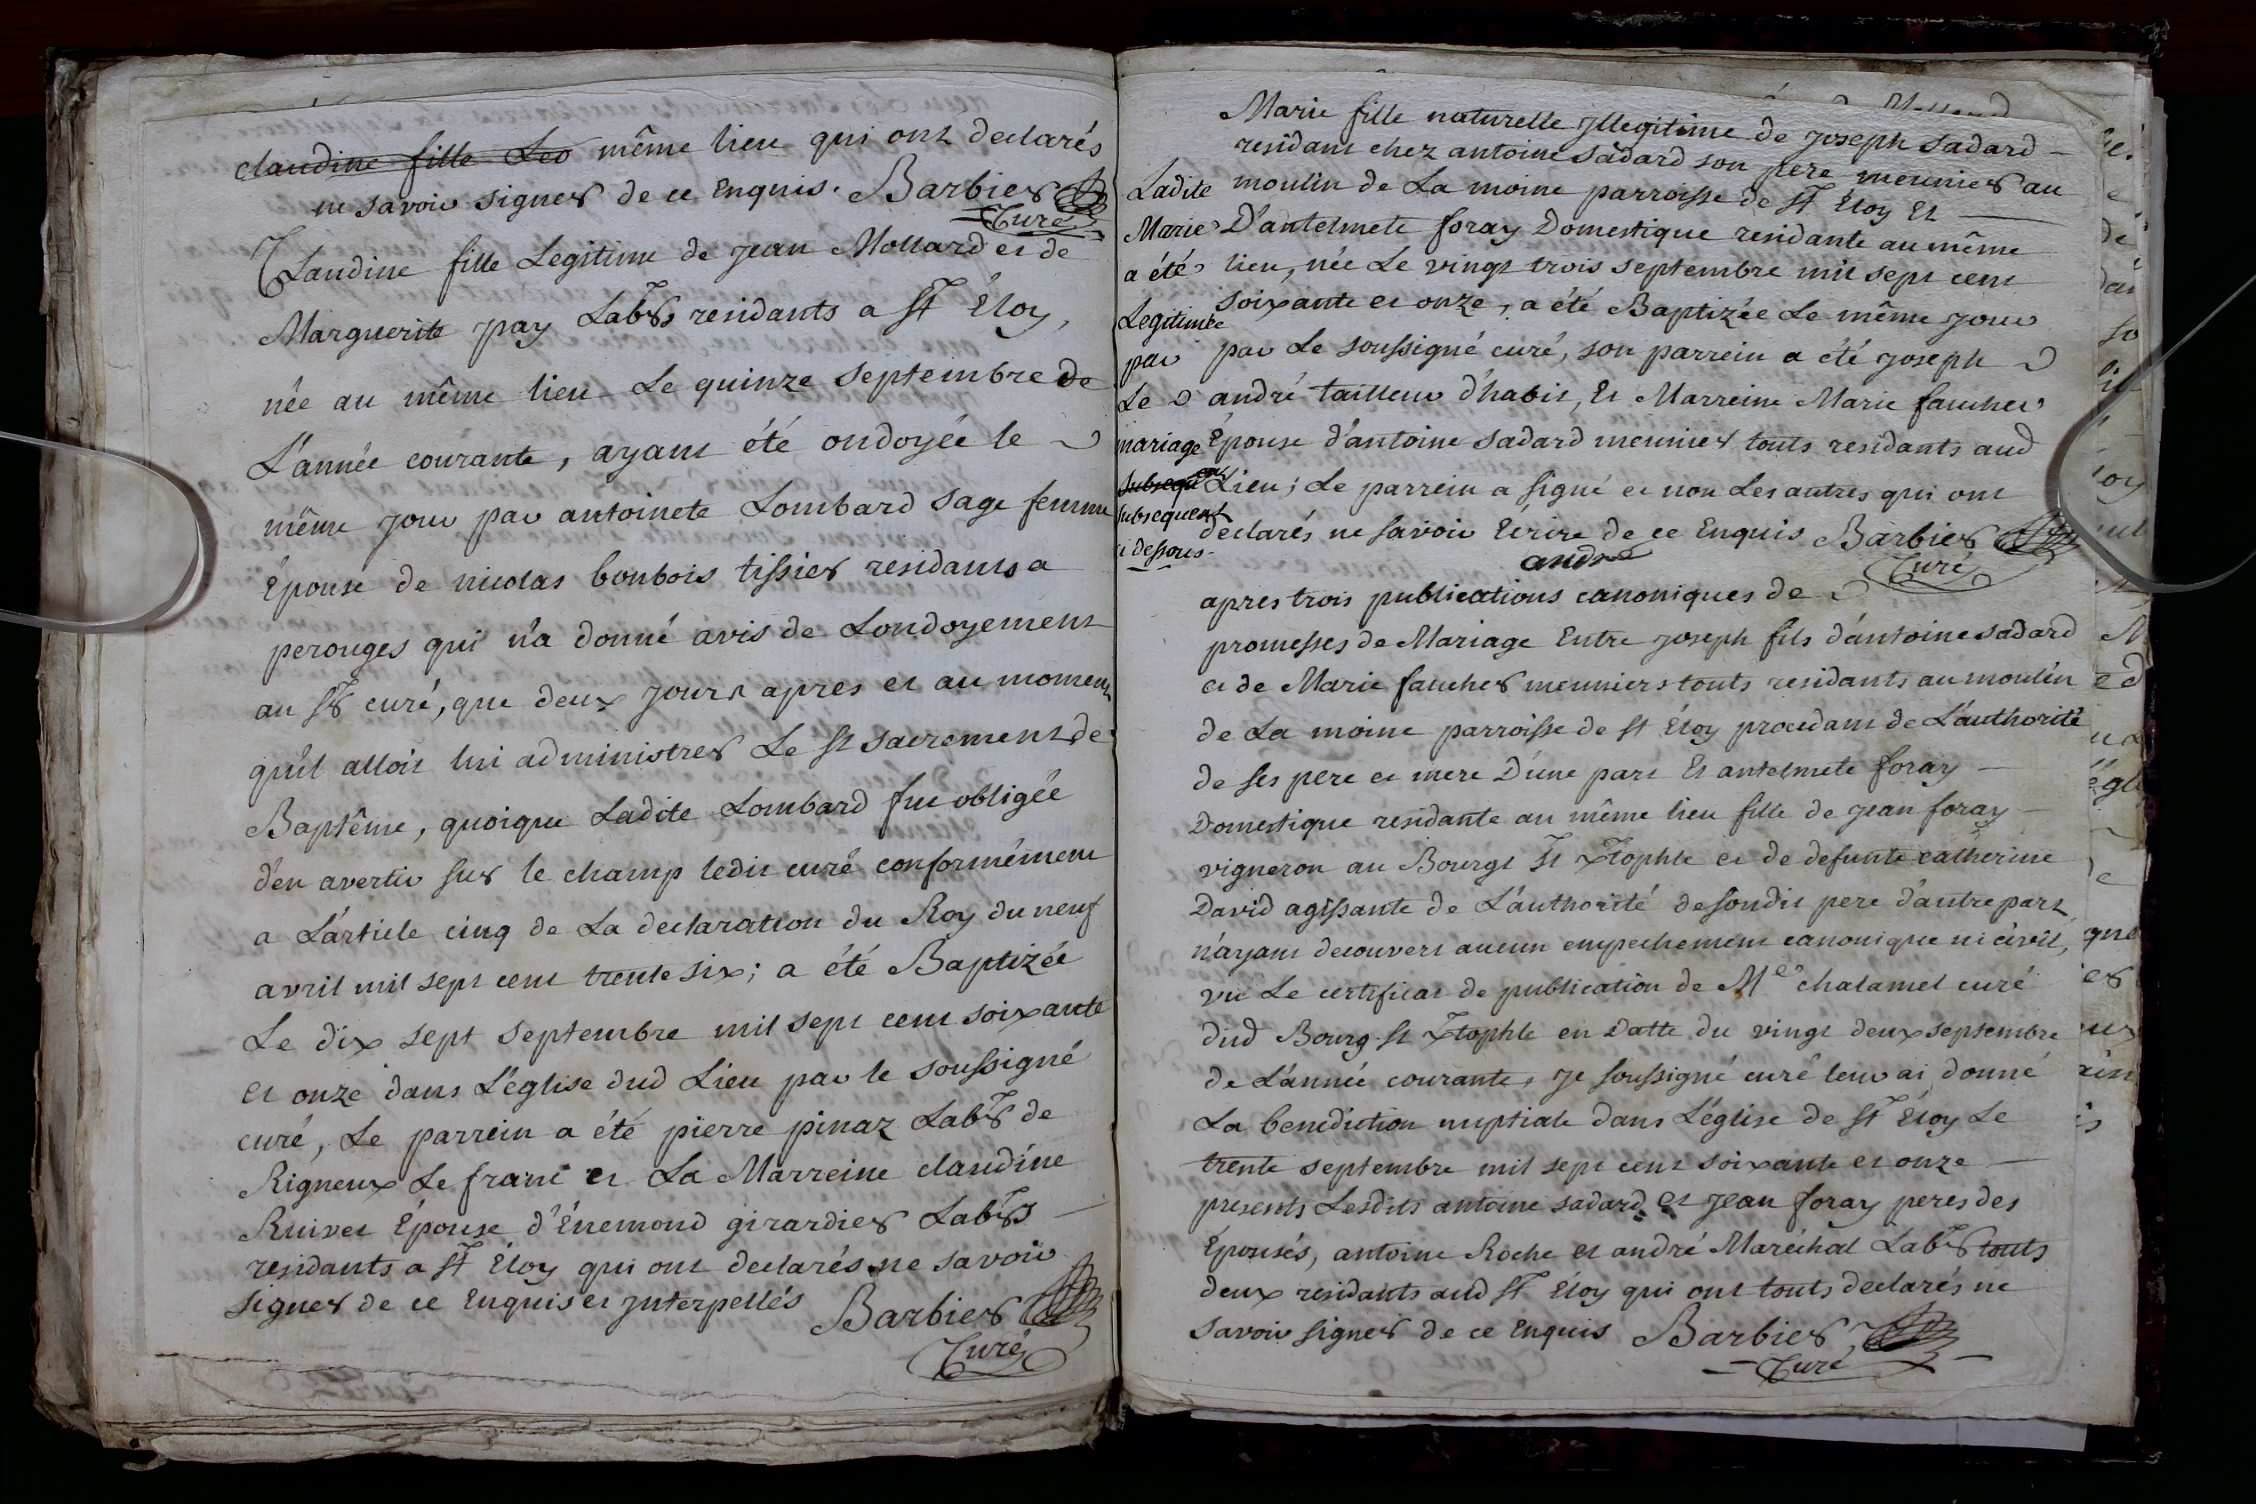 claudine fille Leo même lieu qui ont declarés
ne savoir signer de ce Enquis. Barbier
Curé
Claudine fille Legitime de jean Mollard et de
Marguerite pay Labrs residants a St Éloy,
née au même lieu Le quinze septembre de
L'année courante, ayant été ondoyée le
même jour par antoinete Lombard sage femme
Épouse de nicolas bonbois tissier residants a
perouges qui n'a donné avis de Londoyement
au Sr curé, que deux jours apres et au moment
qu'il alloit lui administrer Le St sacrement de
Baptême, quoique Ladite Lombard fut obligée
d'en avertir sur le champ ledit curé conformément
a L'article cinq de La declaration du Roy du neuf
avril mil sept cent trente six; a été Baptizée
Le dix sept septembre mil sept cent soixante
et onze dans L'église dud Lieu par le soussigné
curé, Le parrein a été pierre pinaz Labr de
Rigneux Le franc et La Marreine claudine
Ruivet Épouse d'Énemond girardier Labrs
residants a St Éloy qui ont declarés ne savoir
signer de ce Enquis et jnterpellés Barbier
Curé
Marie fille naturelle jllegitime de joseph sadard
residant chez antoine sadard son pere meunier au
moulin de La moine parroisse de St Éloy Et
D'antelmete foray Domestique residante au même
lieu, née Le vingt trois septembre mil sept cent
soixante et onze, a été Baptizée Le même jour
par Le soussigné curé, son parrein a été joseph
andré tailleur d'habit, Et Marreine Marie faucher
Épouse d'antoine sadard meunier touts residants aud
Lieu; Le parrein a signé et non Les autres qui ont
declarés ne savoir Écrire de ce Enquis Barbier
andré
Curé
Ladite
Marie
a été
Legitimée
par
Le
mariage
subsequent
subsequent
ci dessous
apres trois publications canoniques de
promesses de Mariage Entre joseph fils d'antoine sadard
et de Marie faucher meuniers touts residants au moulin
de La moine parroisse de St Éloy procedant de L'authorité
de ses pere et mere D'une part Et antelmete foray
Domestique residante au même lieu fille de jean foray
vigneron au Bourgt St Xtophle et de defunte catherine
David agissante de L'authorité desondit pere d'autre part
n'ayant decouvert aucun empechement canonique ni civil,
vu Le certificat de publication de Me chalamel curé
dud Bourg St Xtophle en Datte du vingt deux septembre
de L'année courante, je soussigné curé leur ai donné
La benediction nuptiale dans L'église de St Éloy Le
trente septembre mil sept cent soixante et onze
presents Lesdits antoine sadard et jean foray peres des
Épousés, antoine Roche et andré Maréchal Labrs touts
deux residants aud St Éloy qui ont touts declarés ne
savoir signer de ce Enquis Barbier
Curé